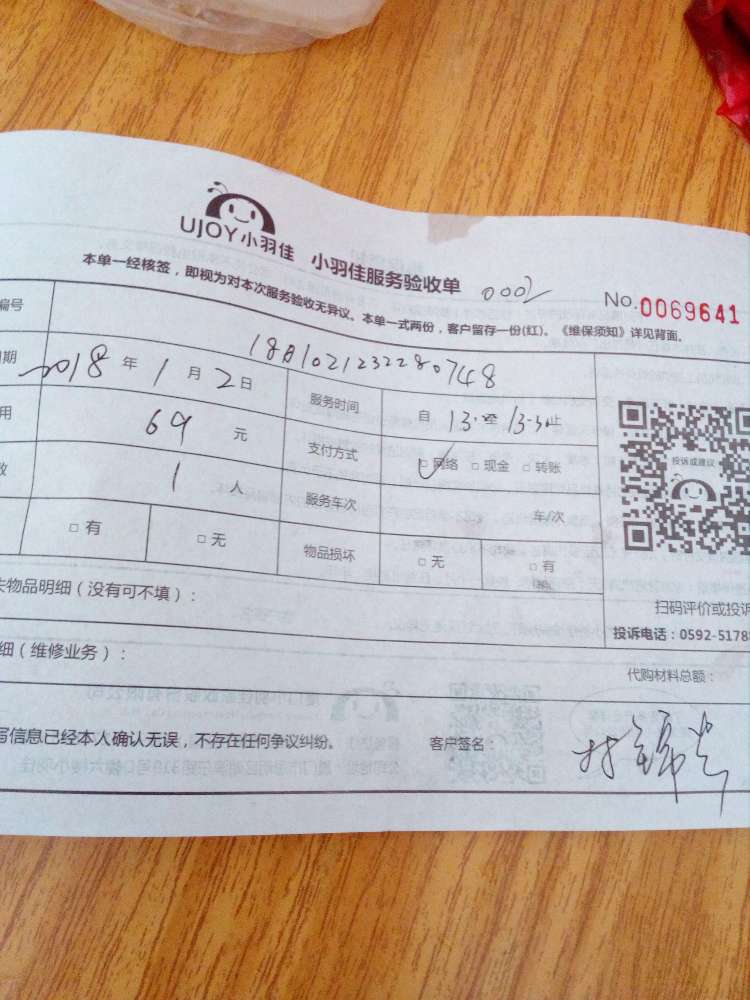 UJOY小羽佳 小羽佳服务验收单 0002 No.0069641
本单一经核签，即视为对本次服务验收无异议。本单一式两份，客户留存一份(红)。《维保须知》详见背面。
编号 1881021232280748
期 2018年1月2日 服务时间 自 13: 至 13-3止
用 69 元 支付方式 □网络 □现金 □转账
数 1 人 服务车次 车/次
□有 □无 物品损坏 □无 □有
投诉或建议
失物品明细（没有可不填）：
扫码评价或投诉
投诉电话：0592-5178
细（维修业务）：
代购材料总额：
写信息已经本人确认无误，不存在任何争议纠纷。 客户签名：